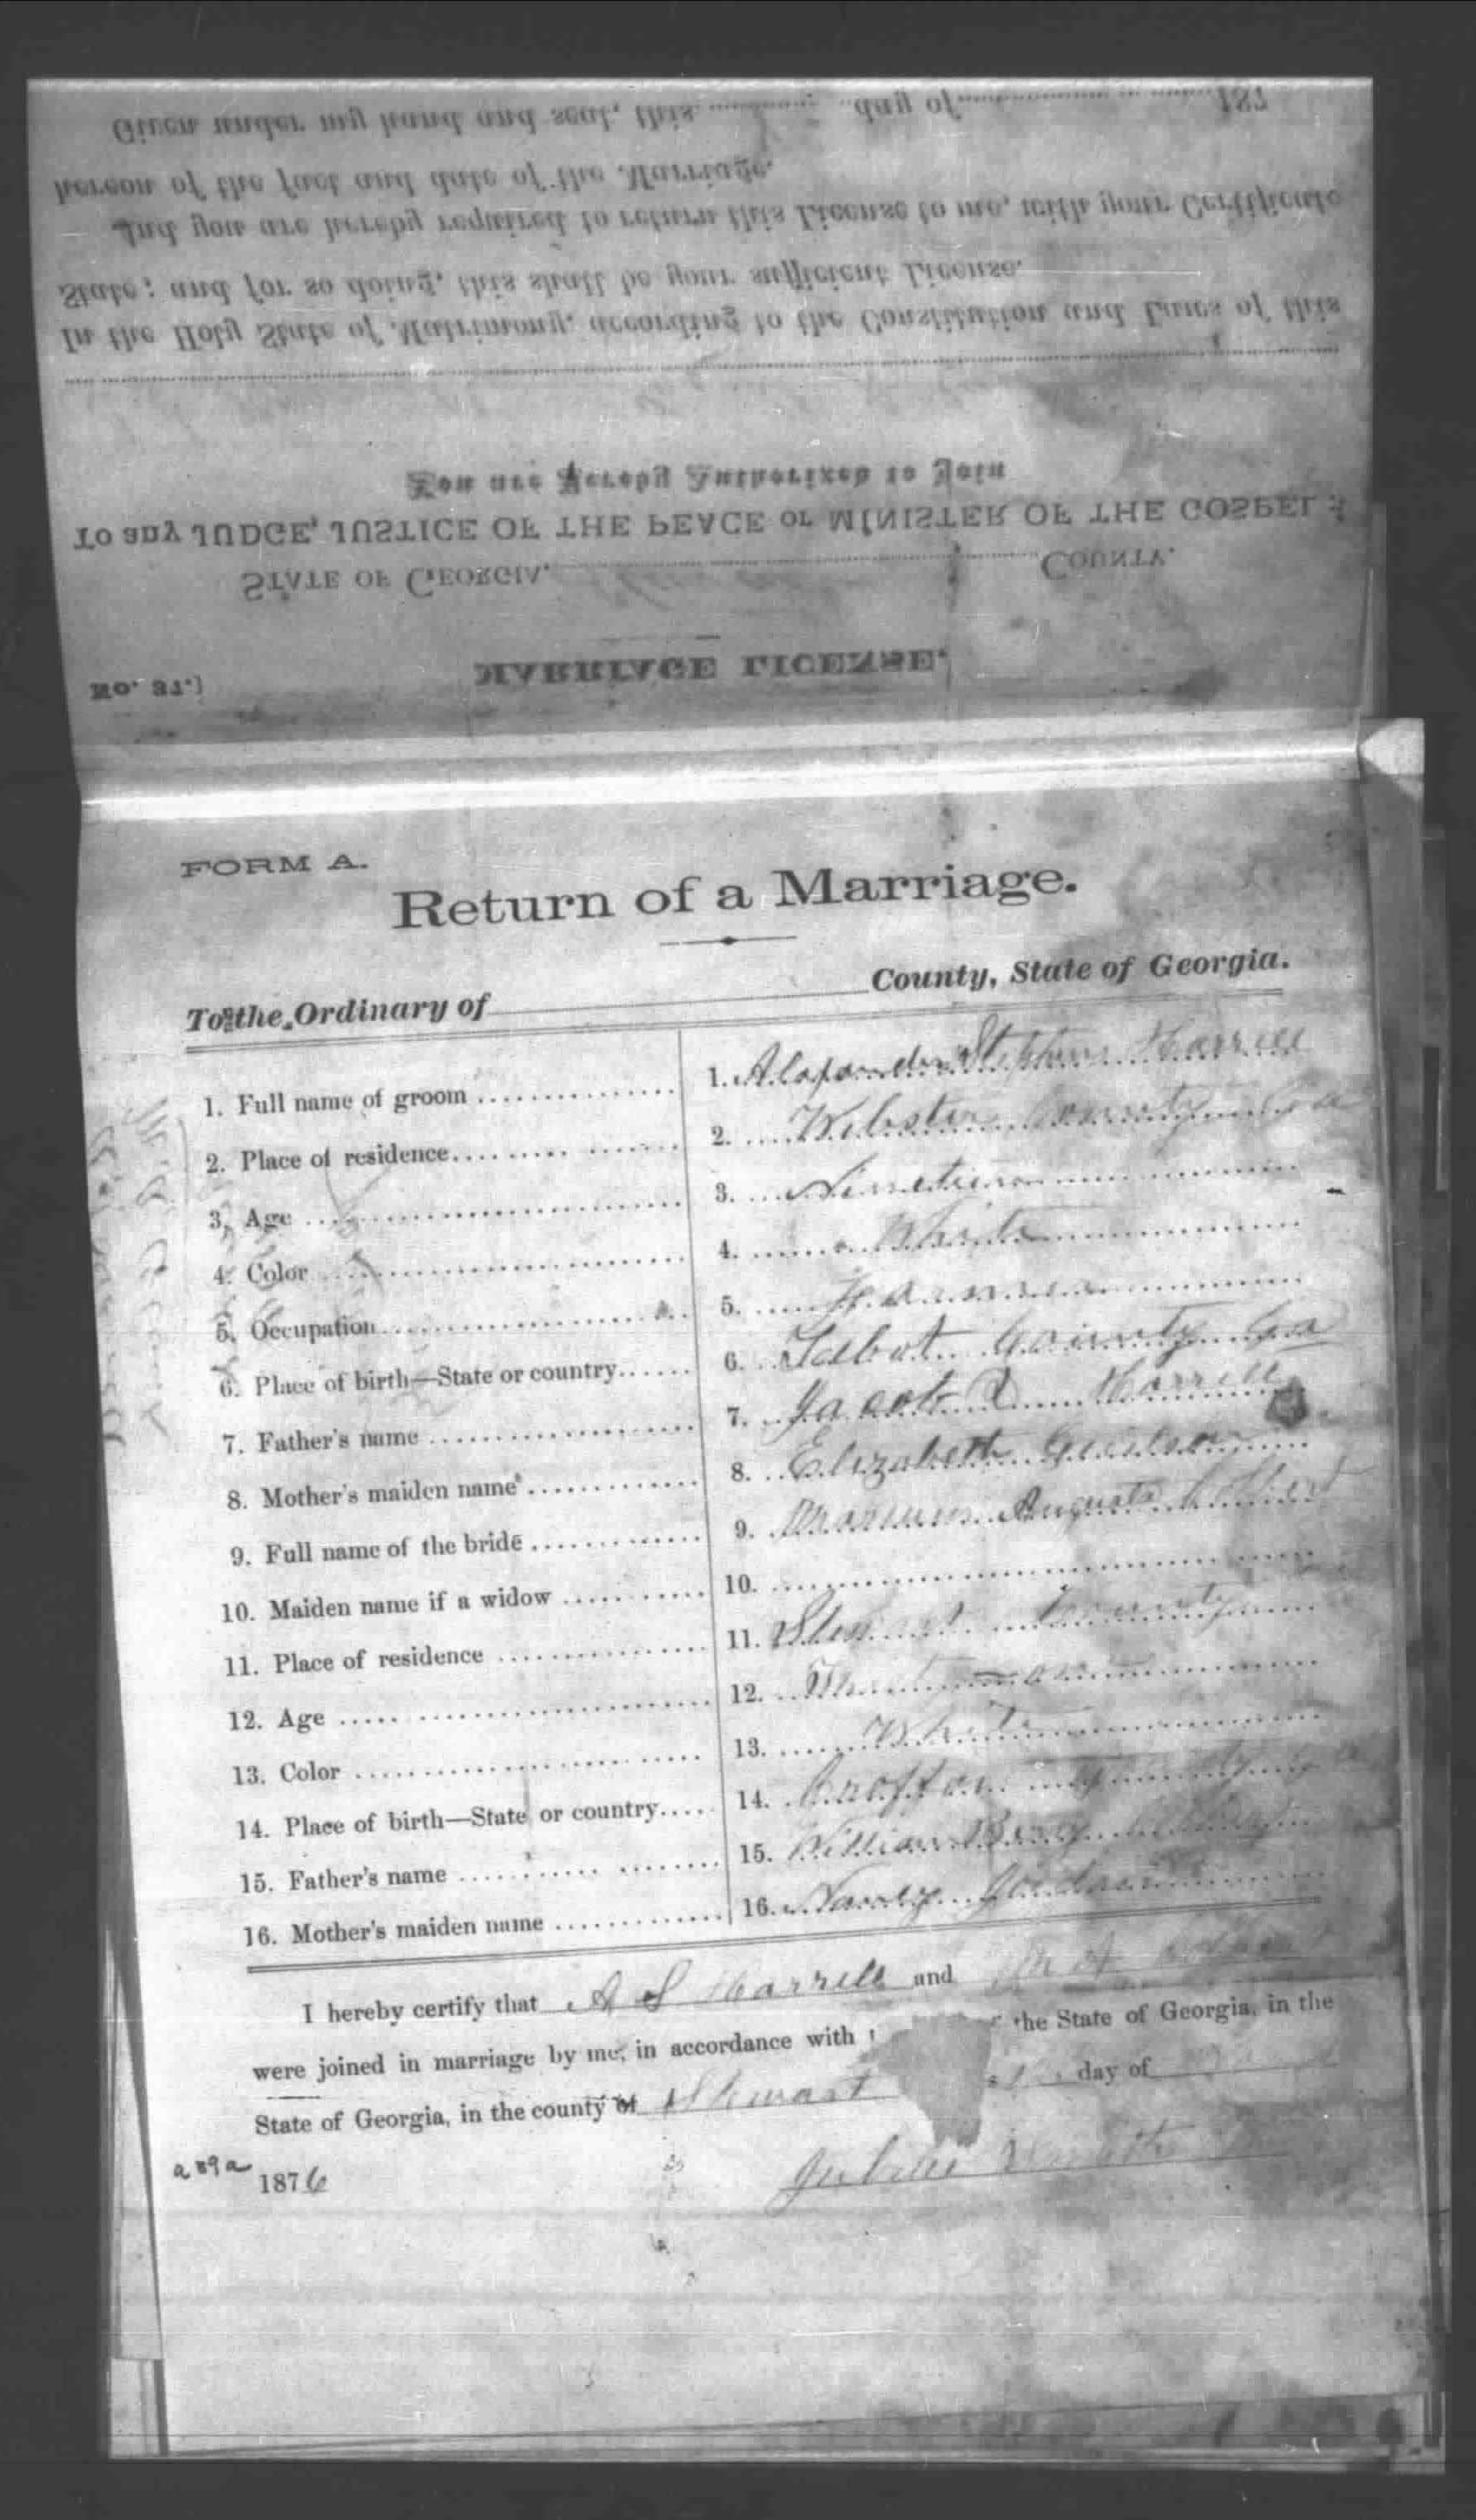 Given under my hand and seal, this day of 187
hereon of the fact and date of the Marriage.
And you are hereby required to return this License to me, with your Certificate
State; and for so doing, this shall be your sufficient License.
In the Holy State of Matrimony, according to the Constitution and Laws of this
You are Hereby Authorized to Join
To any JUDGE, JUSTICE OF THE PEACE or MINISTER OF THE GOSPEL:
STATE OF GEORGIA. COUNTY.
MARRIAGE LICENSE.
FORM A.
Return of a Marriage.
To the Ordinary of County, State of Georgia.
1. Full name of groom 1. Alexander Stephens Harrell
2. Place of residence 2. Webster County Ga
3. Age 3. Nineteen
4. Color 4. White
5. Occupation 5. Farmer
6. Place of birth—State or country 6. Talbot County Ga
7. Father's name 7. Jacob Harrell
8. Mother's maiden name 8. Elizabeth
9. Full name of the bride 9. Augusta
10. Maiden name if a widow 10.
11. Place of residence 11. Stewart County
12. Age 12.
13. Color 13. White
14. Place of birth—State or country 14.
15. Father's name 15. William
16. Mother's maiden name 16. Nancy
I hereby certify that A S Harrell and M A
were joined in marriage by me, in accordance with the State of Georgia, in the
State of Georgia, in the county of Stewart day of
1876